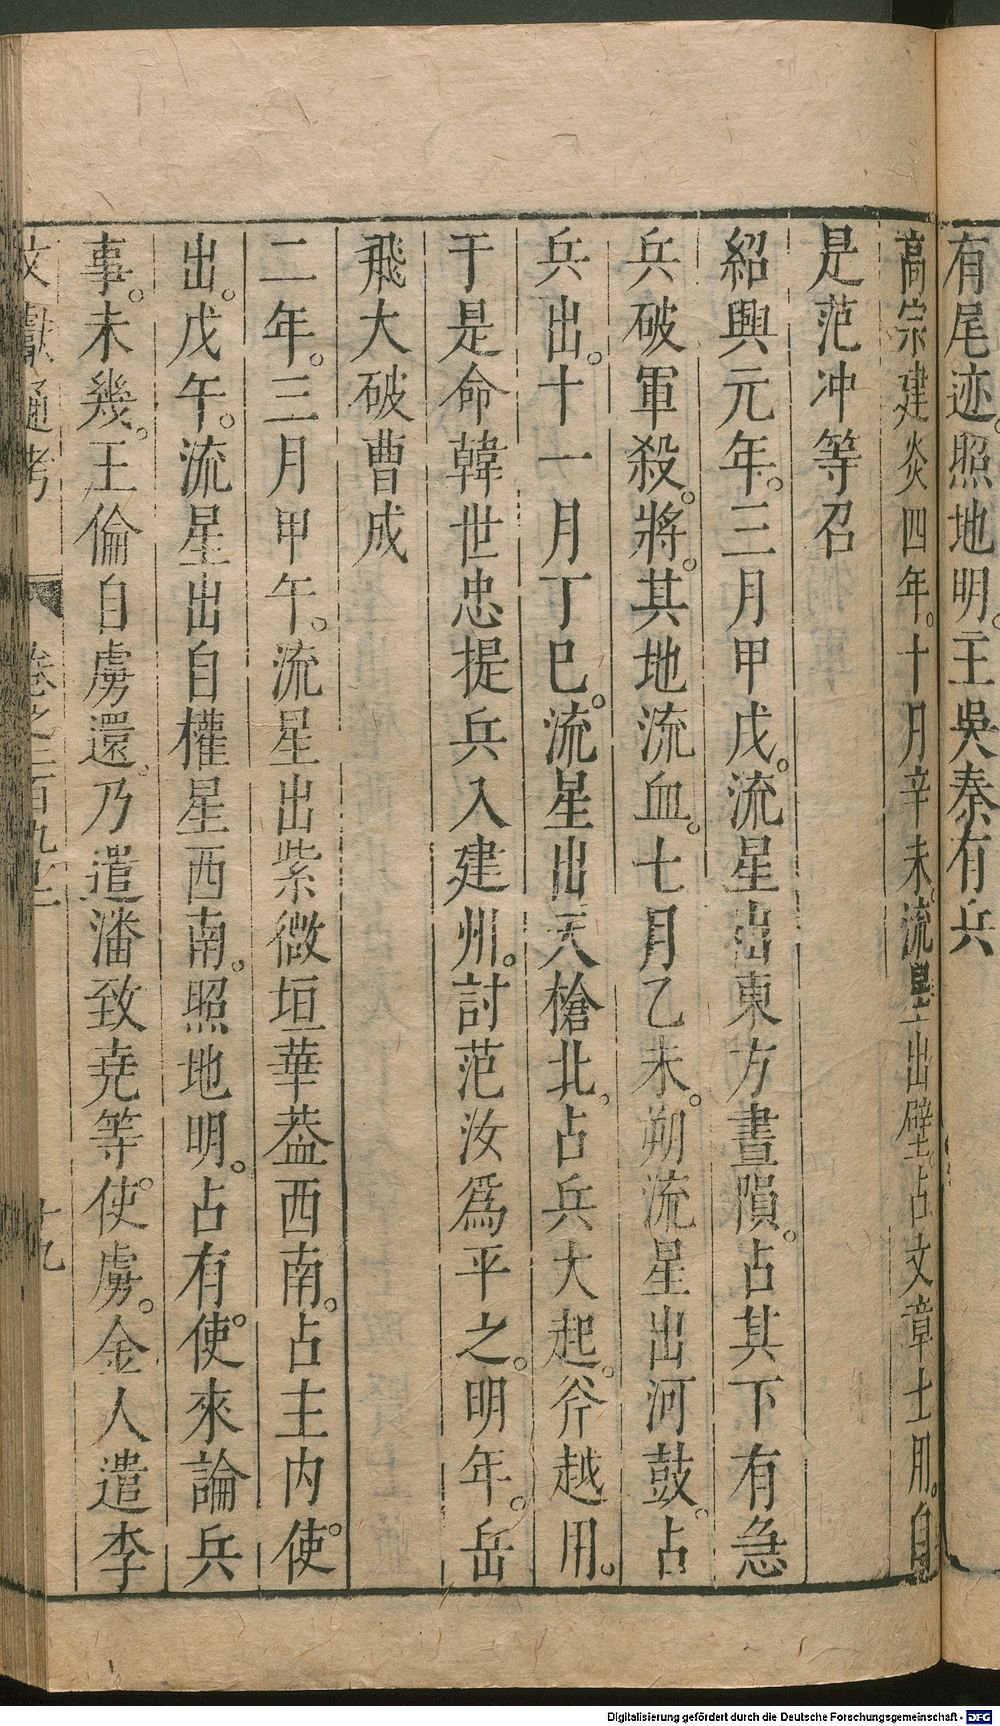 有尾迹。照地明。主吳秦有兵
高宗建炎四年。十月辛未。流星出壁占文章士用。自
是范冲等召
紹興元年。三月甲戌。流星出東方晝隕。占其下有急
兵破軍殺。將。其地流血。七月乙未。朔流星出河鼓。占
兵出。十一月丁巳。流星出天槍北占兵大起。斧越用。
于是命韓世忠提兵入建州。討范汝爲平之。明年。岳
飛大破曹成
二年。三月甲午。流星出紫微垣華葢西南。占主内使。
出。戊午。流星出自權星西南。照地明。占有使。來論兵
事。未幾。王倫自虜還。乃遣潘致堯等。使虜。金人遣李
文獻通考 卷之二百九十一 十九
Digitalisierung gefördert durch die Deutsche Forschungsgemeinschaft - DFG